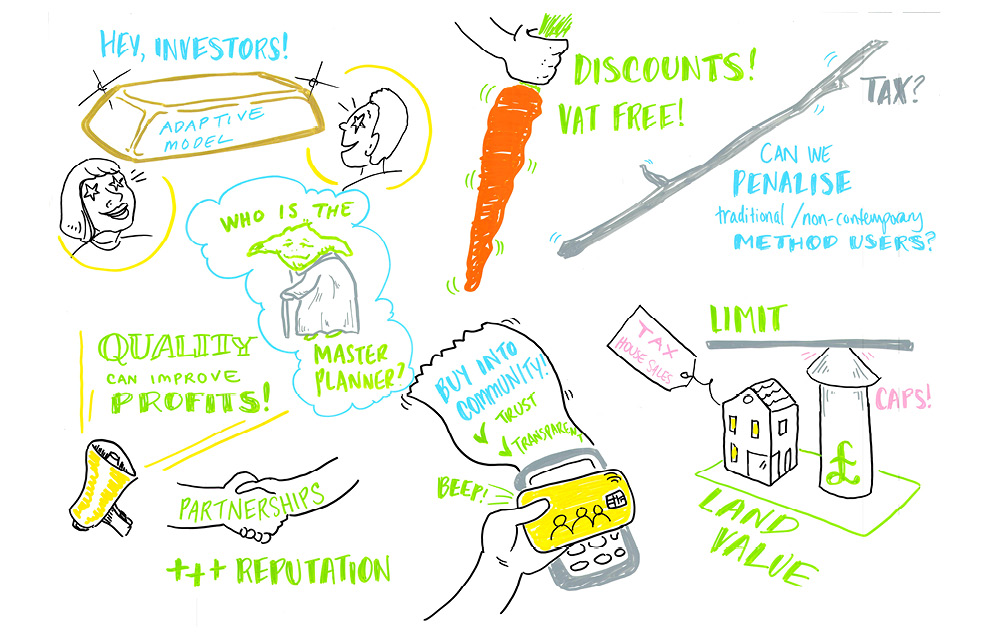 HEY, INVESTORS!
ADAPTIVE
MODEL
DISCOUNTS!
VAT FREE!
TAX?
CAN WE
PENALISE
traditional/non-contemporary
METHOD USERS?
WHO IS THE
MASTER
PLANNER?
QUALITY
CAN IMPROVE
PROFITS!
PARTNERSHIPS
+++ REPUTATION
BUY INTO
COMMUNITY!
✓ TRUST
✓ TRANSPARENT
BEEP!
LIMIT
TAX
HOUSE SALES
CAPS!
£
LAND
VALUE